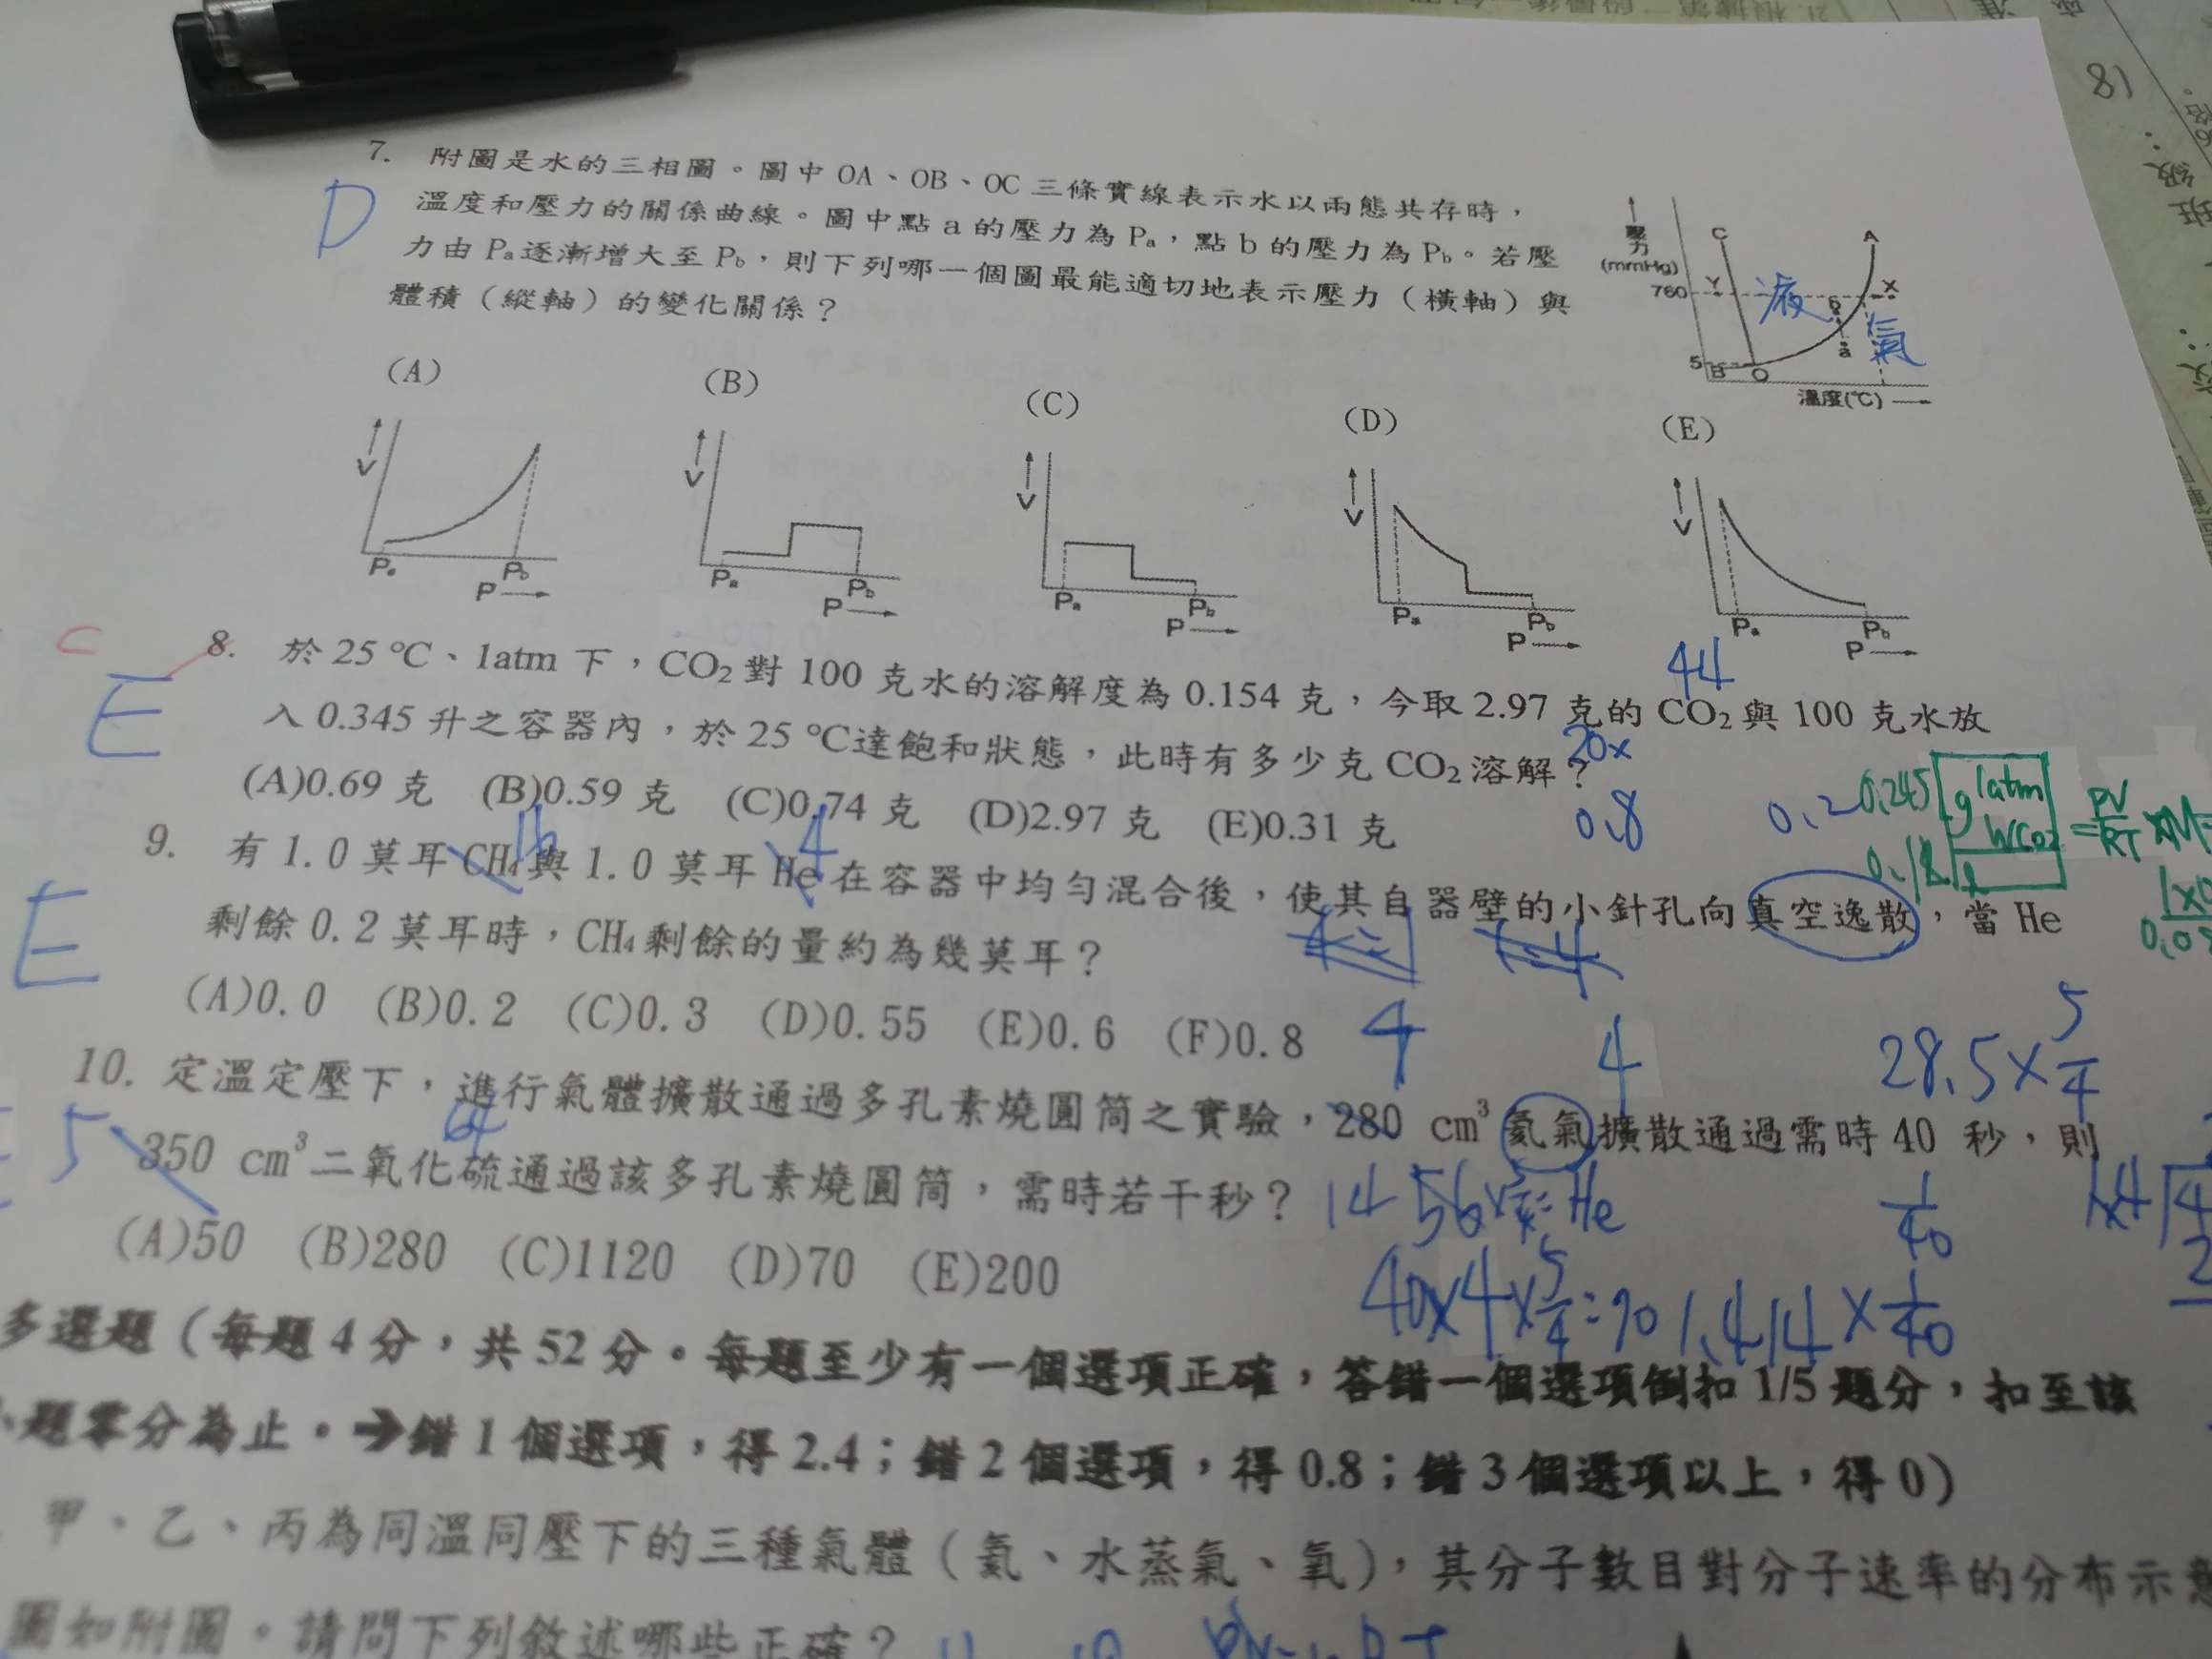 7. 附圖是水的三相圖。圖中 OA、OB、OC 三條實線表示水以兩態共存時，
溫度和壓力的關係曲線。圖中點 a 的壓力為 Pa，點 b 的壓力為 Pb。若壓
力由 Pa 逐漸增大至 Pb，則下列哪一個圖最能適切地表示壓力（橫軸）與
體積（縱軸）的變化關係？
D
壓力
(mmHg)
760
5
C
A
Y
X
液
b
a
氣
B
O
溫度(℃)
(A)
(B)
(C)
(D)
(E)
V Pa Pb P
V Pa Pb P
V Pa Pb P
V Pa Pb P
V Pa Pb P
C
E
44
8. 於 25 ℃、1atm 下，CO2 對 100 克水的溶解度為 0.154 克，今取 2.97 克的 CO2 與 100 克水放
入 0.345 升之容器內，於 25 ℃達飽和狀態，此時有多少克 CO2 溶解？
(A)0.69 克 (B)0.59 克 (C)0.74 克 (D)2.97 克 (E)0.31 克
20x
0.8
0.245
1atm
16
4
E
9. 有 1.0 莫耳 CH4 與 1.0 莫耳 He 在容器中均勻混合後，使其自器壁的小針孔向真空逸散，當 He
剩餘 0.2 莫耳時，CH4 剩餘的量約為幾莫耳？
(A)0.0 (B)0.2 (C)0.3 (D)0.55 (E)0.6 (F)0.8
4
4
28.5×5/4
10. 定溫定壓下，進行氣體擴散通過多孔素燒圓筒之實驗，280 cm³ 氦氣擴散通過需時 40 秒，則
350 cm³ 二氧化硫通過該多孔素燒圓筒，需時若干秒？
64
5
He
1/40
(A)50 (B)280 (C)1120 (D)70 (E)200
40×4×5/4=90
1.414×1/40
多選題（每題 4 分，共 52 分。每題至少有一個選項正確，答錯一個選項倒扣 1/5 題分，扣至該
題零分為止。➔錯 1 個選項，得 2.4；錯 2 個選項，得 0.8；錯 3 個選項以上，得 0）
甲、乙、丙為同溫同壓下的三種氣體（氦、水蒸氣、氧），其分子數目對分子速率的分布示意
圖如附圖。請問下列敘述哪些正確？